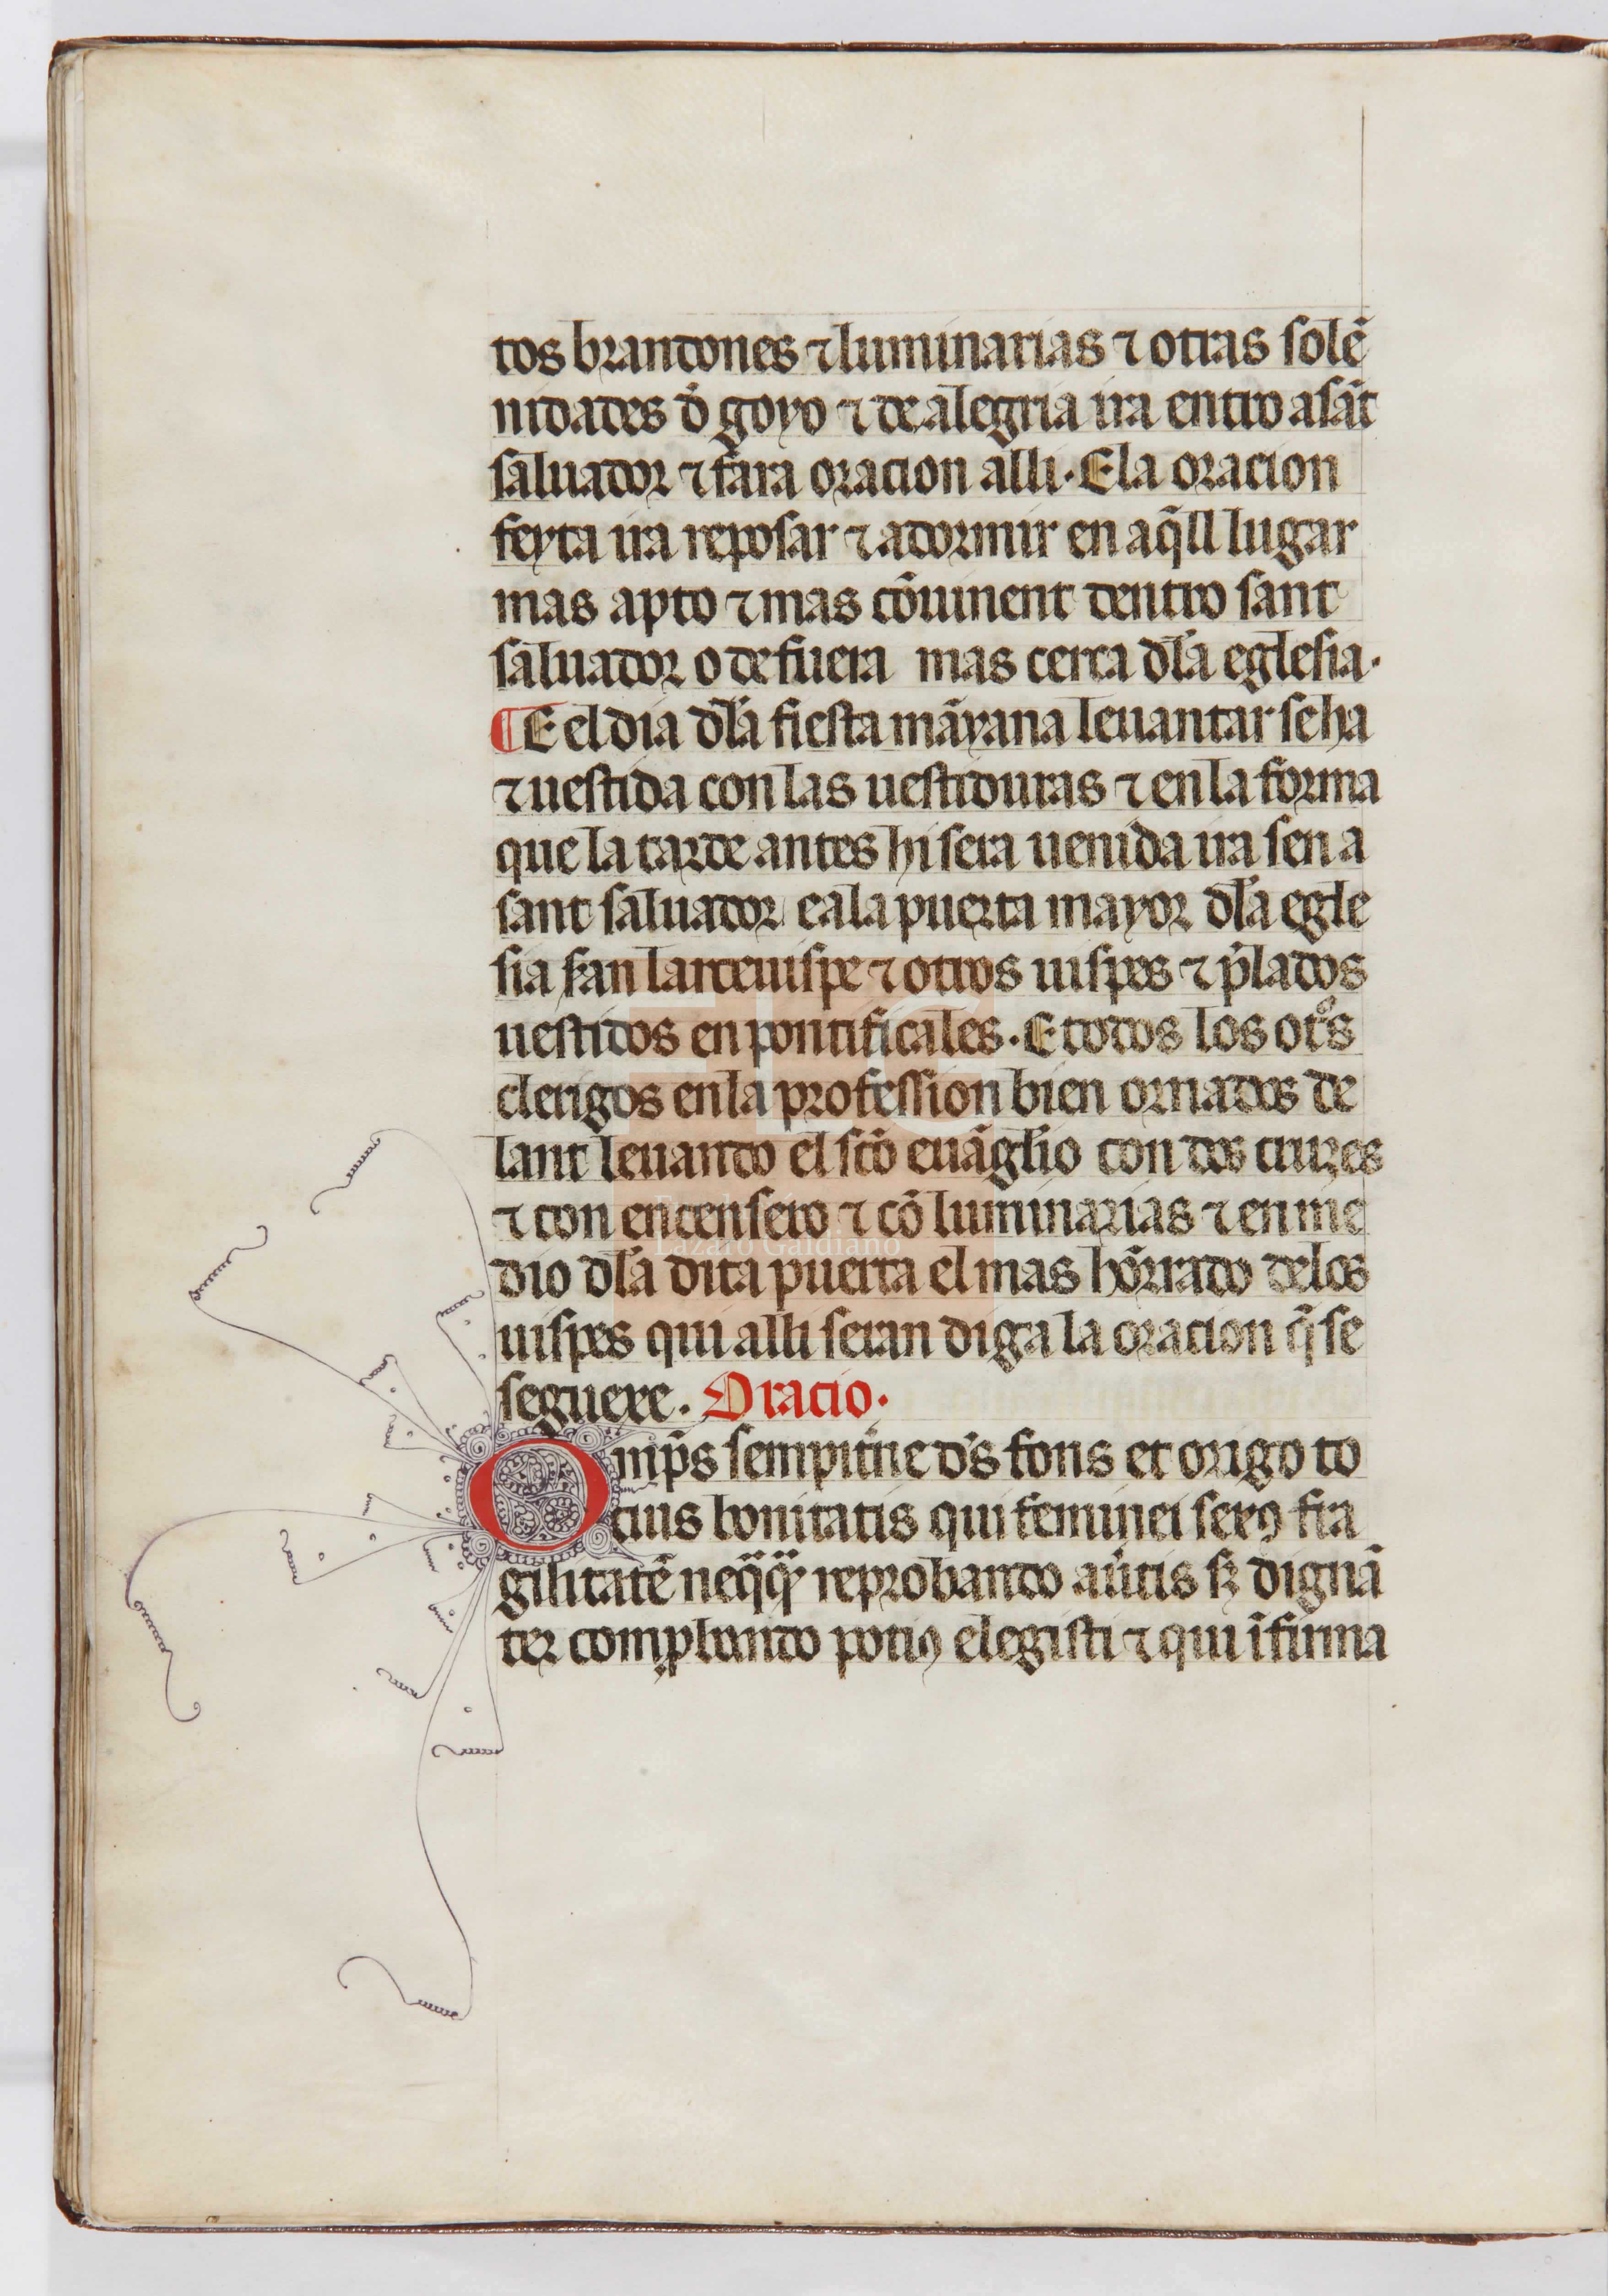 tos brandones ⁊ luminarias ⁊ otras solẽ
nidades đ goyo ⁊ de alegria ira entro a sãt
saluador ⁊ fara oracion alli. E la oracion
feyta ira reposar ⁊ a dormir en aq̃ll lugar
mas apto ⁊ mas cõuinent dentro sant
saluador o de fuera mas cerca dl̃a eglesia.
¶ E el dia dl̃a fiesta mãyana leuantar se ha
⁊ uestida con las uestiduras ⁊ en la forma
que la tarde antes hi sera uenida ira sen a
sant saluador e a la puerta mayor dl̃a egle
sia seran larceuispe ⁊ otros uispes ⁊ p̃lados
uestidos en pontificales. E todos los otᵒs
clerigos en la profession bien ornados de
lant leuando el scõ euãglio con dos cruzes
⁊ con encensero ⁊ cõ luminarias ⁊ en me
dio dl̃a dita puerta el mas hõrrado de los
uispes qui alli seran diga la oracion q̃ se
seguexe. Oracio.
Omp̃s sempit̃ne d̃s fons et origo to
cius bonitatis qui feminei sexꝰ fra
gilitatẽ neq̃q̃ reprobando au̾tis sꝫ dignã
ter comp̱bando potiꝰ elegisti ⁊ qui ĩfirma
Lázaro Galdiano